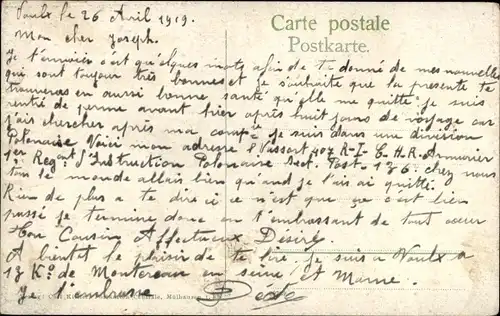 Voulx le 26 Avril 1919.
Carte postale
Postkarte.
Mon cher Joseph.
Je t'envoie c'est quelques mots afin de te donné de mes nouvelle
qui sont toujour très bonnes et je souhaite que la presente te
trouveras en aussi bonne santé qu'elle me quitte je suis
rentré de perme avant hier après huit jours de voyage car
j'ais chercher après ma compie je suis dans une division
Polonaise Voici mon adresse 407 R-I- C-H-R- Armurier
1er Regont d'Instruction Polonaise Sect. Post- 176. chez nous
tous le monde allais bien quand je l'ais ai quitté.
Rien de plus a te dire ici ce n'est que ça c'est bien
passé je termine donc en t'embrassant de tout cœur
Ton Cousin Affectueux Désiré.
A bientot le plaisir de te lire. je suis a Voulx a
17 Ko. de Montereau en seine et Marne.
Je t'embrasse Désiré
Mülhausen